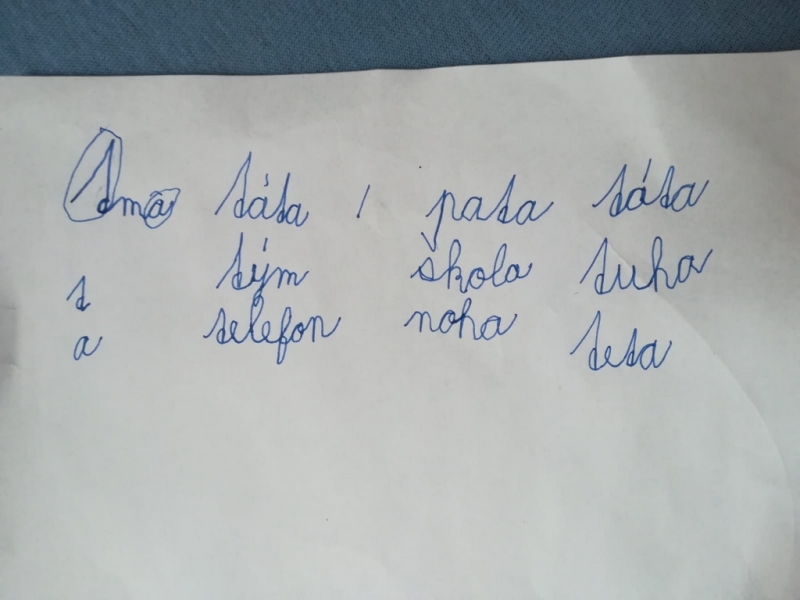 tma táta / pata táta
t tým škola tuha
a telefon noha teta